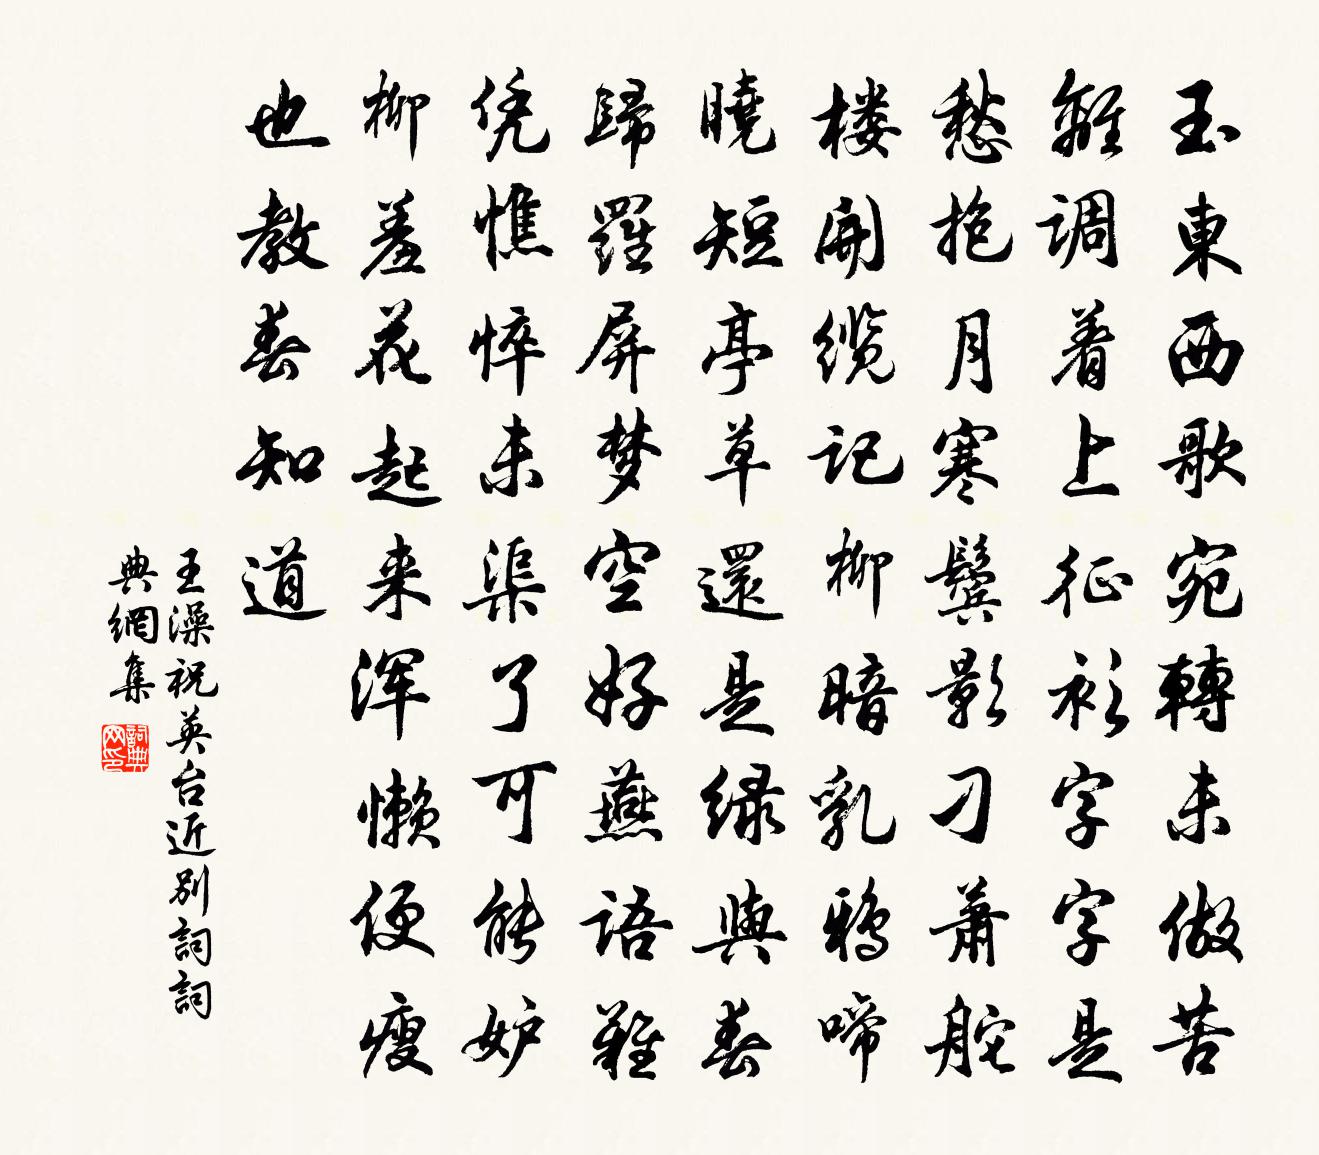 玉東西歌宛轉未做苦
離调着上征衫字字是
愁抱月寒鬓影刁萧舵
楼開缆记柳暗乳鸦啼
曉短亭草還是绿與春
歸羅屏梦空好燕语難
凭憔悴未渠了可能妒
柳羞花起来浑懒便瘦
也教春知道
王澡祝英台近别詞詞
典網集
詞典网印